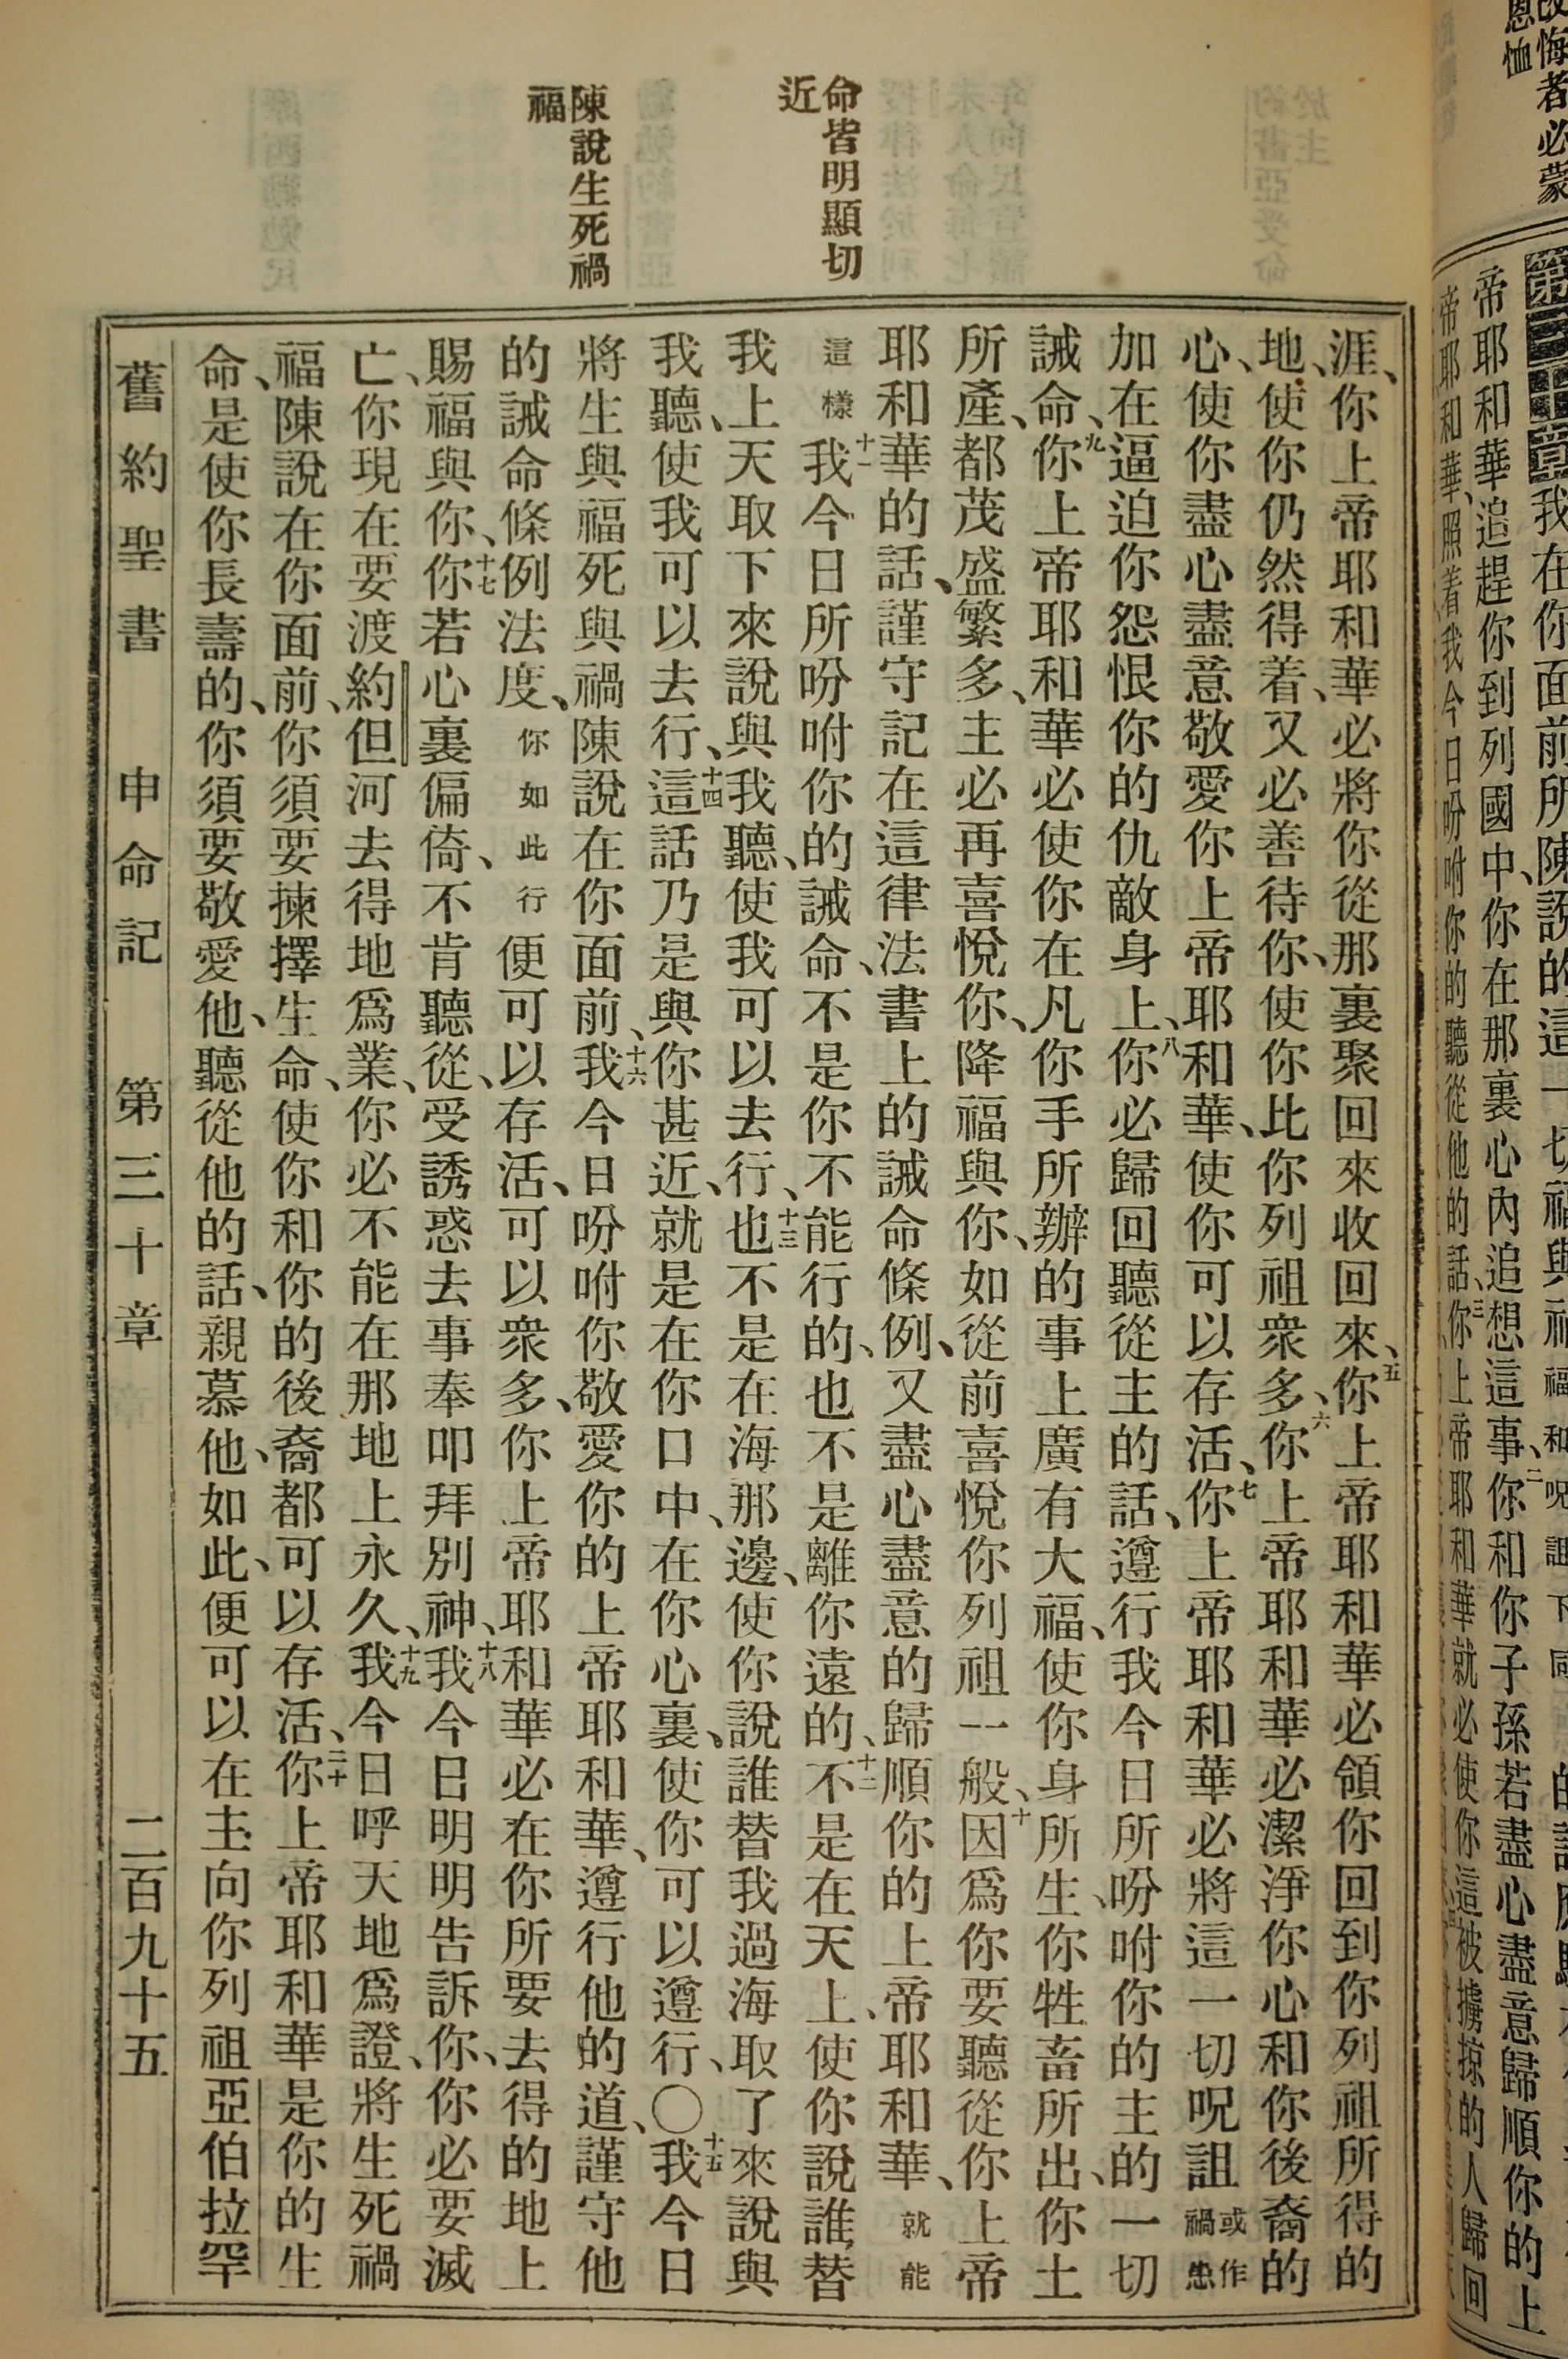 改悔者必蒙
恩恤
第三十章我在你面前所陳說的這一切福與禍
帝耶和華追趕你到列國中、你在那裏心內追想這事、二你和你子孫若盡心盡意歸順你的上
帝耶和華、照着我今日吩咐你的聽從他的話、三你上帝耶和華就必使你這被擄掠的人歸回
命皆明顯切
近
陳說生死禍
福
涯、你上帝耶和華必將你從那裏聚回來收回來、五你上帝耶和華必領你回到你列祖所得的
地、使你仍然得着、又必善待你、使你比你列祖衆多、六你上帝耶和華必潔淨你心和你後裔的
心、使你盡心盡意敬愛你上帝耶和華、使你可以存活、七你上帝耶和華必將這一切呪詛或作禍患
加在逼迫你怨恨你的仇敵身上、八你必歸回聽從主的話、遵行我今日所吩咐你的主的一切
誡命、九你上帝耶和華必使你在凡你手所辦的事上廣有大福、使你身所生、你牲畜所出、你土
所產、都茂盛繁多、主必再喜悅你、降福與你、如從前喜悅你列祖一般、十因爲你要聽從你上帝
耶和華的話、謹守記在這律法書上的誡命條例、又盡心盡意的歸順你的上帝耶和華、就能
這樣十一我今日所吩咐你的誡命、不是你不能行的、也不是離你遠的、十二不是在天上、使你說誰替
我上天取下來說與我聽、使我可以去行、十三也不是在海那邊、使你說誰替我過海取了來說與
我聽、使我可以去行、十四這話乃是與你甚近、就是在你口中、在你心裏、使你可以遵行、○十五我今日
將生與福死與禍陳說在你面前、十六我今日吩咐你敬愛你的上帝耶和華、遵行他的道、謹守他
的誡命條例法度、你如此行便可以存活、可以衆多、你上帝耶和華必在你所要去得的地上
賜福與你、十七你若心裏偏倚、不肯聽從、受誘惑去事奉叩拜別神、十八我今日明明告訴你、你必要滅
亡、你現在要渡約但河去得地爲業、你必不能在那地上永久、十九我今日呼天地爲證、將生死禍
福陳說在你面前、你須要揀擇生命、使你和你的後裔都可以存活、二十你上帝耶和華是你的生
命、是使你長壽的、你須要敬愛他、聽從他的話、親慕他、如此、便可以在主向你列祖亞伯拉罕
舊約聖書 申命記 第三十章 二百九十五